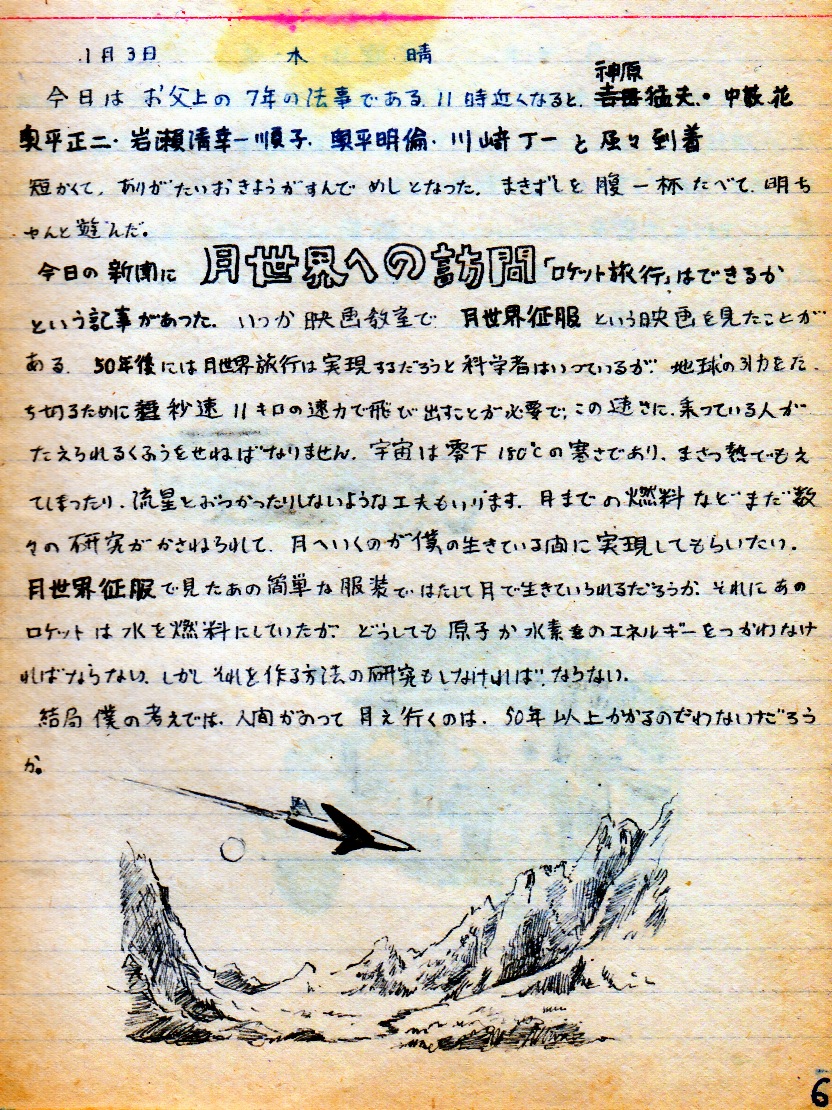 1月3日 木 晴
神原
今日は お父上の 7年の法事である. 11時近くなると, 吉田猛夫.・中敷 花
奥平正二・岩瀬清幸一順子. 奥平明倫・川崎丁一 と 到着
短かくて, ありがたいおきようがすんで めしとなった. まきずしを 腹一杯たべて, 明ち
ゃんと遊んだ。
今日の 新聞に 月世界への訪問「ロケット旅行」はできるか
という記事があった. いつか 映画教室で 月世界征服 という映画を見たことが
ある. 50年後には月世界旅行は実現するだろうと科学者はいっているが. 地球の引力をた.
ち切るために 秒速 11キロの速力で飛び出すことが必要で, この速さに, 乗っている人が
たえられるくふうをせねばなりません. 宇宙は零下180℃の寒さであり, まさつ熱でもえ
てしまったり. 流星とぶつかったりしないような工夫もいります. 月までの燃料などまだ数
々の研究がかさねられて. 月へいくのが僕の生きている間に実現してもらいたい.
月世界征服で見たあの簡単な服装ではたして月で生きていられるだろうか. それにあの
ロケットは水を燃料にしていたが. どうしても原子か水素のエネルギーをつかわなけ
ればならない. しかしそれを作る方法の研究もしなければ, ならない.
結局僕の考えでは. 人間がのって月え行くのは. 50年以上かかるのでわないだろう
か。
6